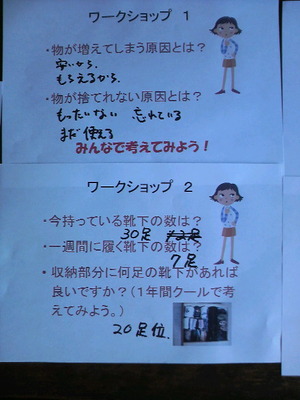 ワークショップ 1
・物が増えてしまう原因とは?
安いから.
もらえるから.
・物が捨てれない原因とは?
もったいない 忘れている
まだ使える
みんなで考えてみよう!
ワークショップ 2
・今持っている靴下の数は?
30足
・一週間に履く靴下の数は?
7足
・収納部分に何足の靴下があれば
良いですか?(1年間クールで考
えてみよう。)
20足位.